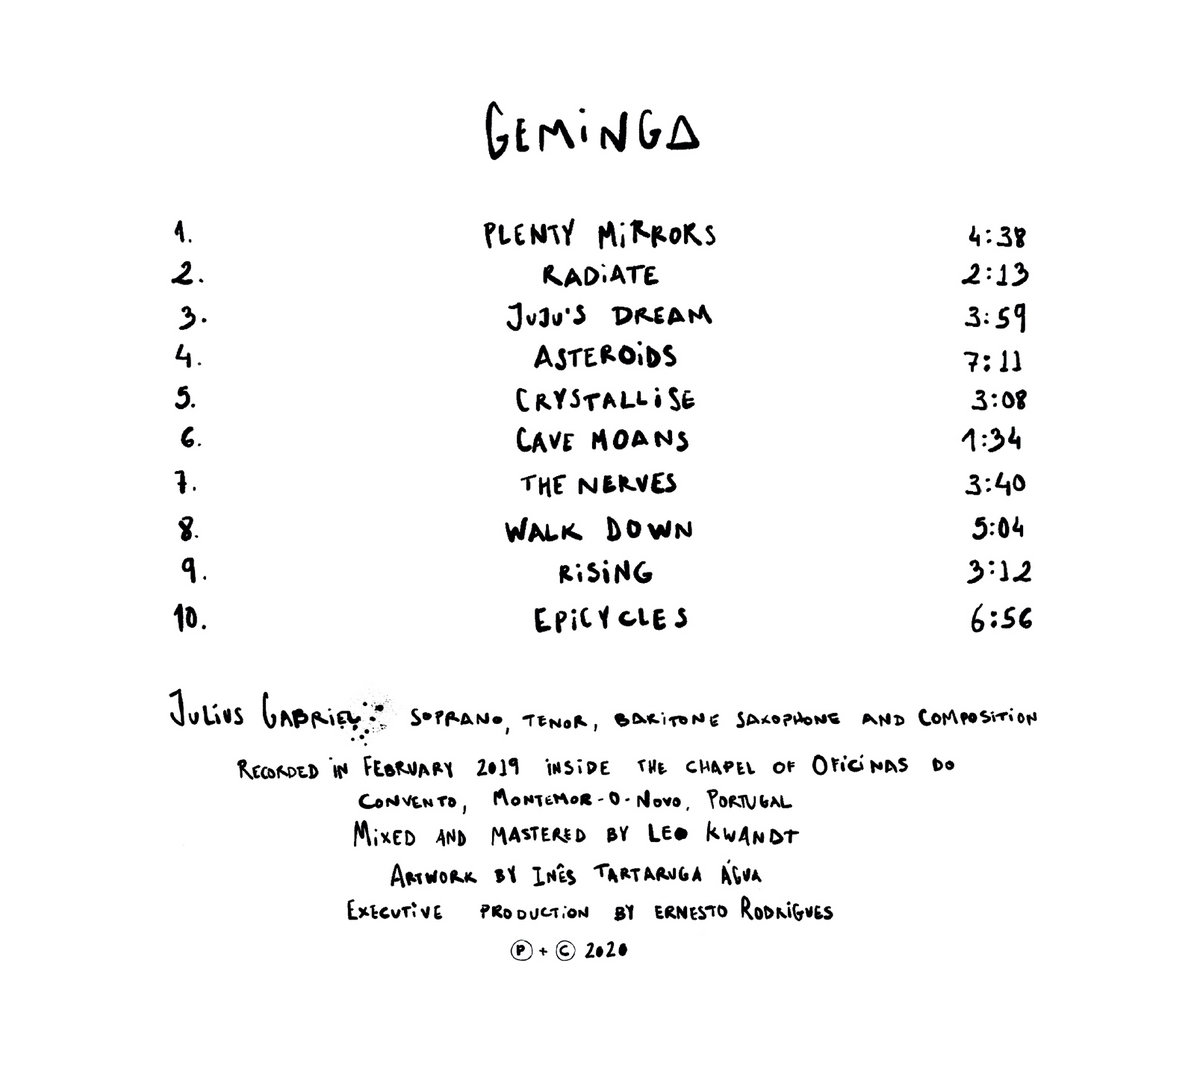 GEMiNGA
1. PLENTY MiRRORS 4:38
2. RADiATE 2:13
3. JUJU'S DREAM 3:59
4. ASTEROiDS 7:11
5. CRYSTALLiSE 3:08
6. CAVE MOANS 1:34
7. THE NERVES 3:40
8. WALK DOWN 5:04
9. RiSiNG 3:12
10. EPiCYCLES 6:56
JULiUS GABRiEL: SOPRANO, TENOR, BARITONE SAXOPHONE AND COMPOSITiON
RECORDED iN FEBRUARY 2019 iNSiDE THE CHAPEL OF OFiCiNAS DO
CONVENTO, MONTEMOR-O-NOVO, PORTUGAL
MiXED AND MASTERED BY LEO KWANDT
ARTWORK BY INÊS TARTARUGA ÁGUA
EXECUTiVE PRODUCTiON BY ERNESTO RODRiGUES
Ⓟ + © 2020